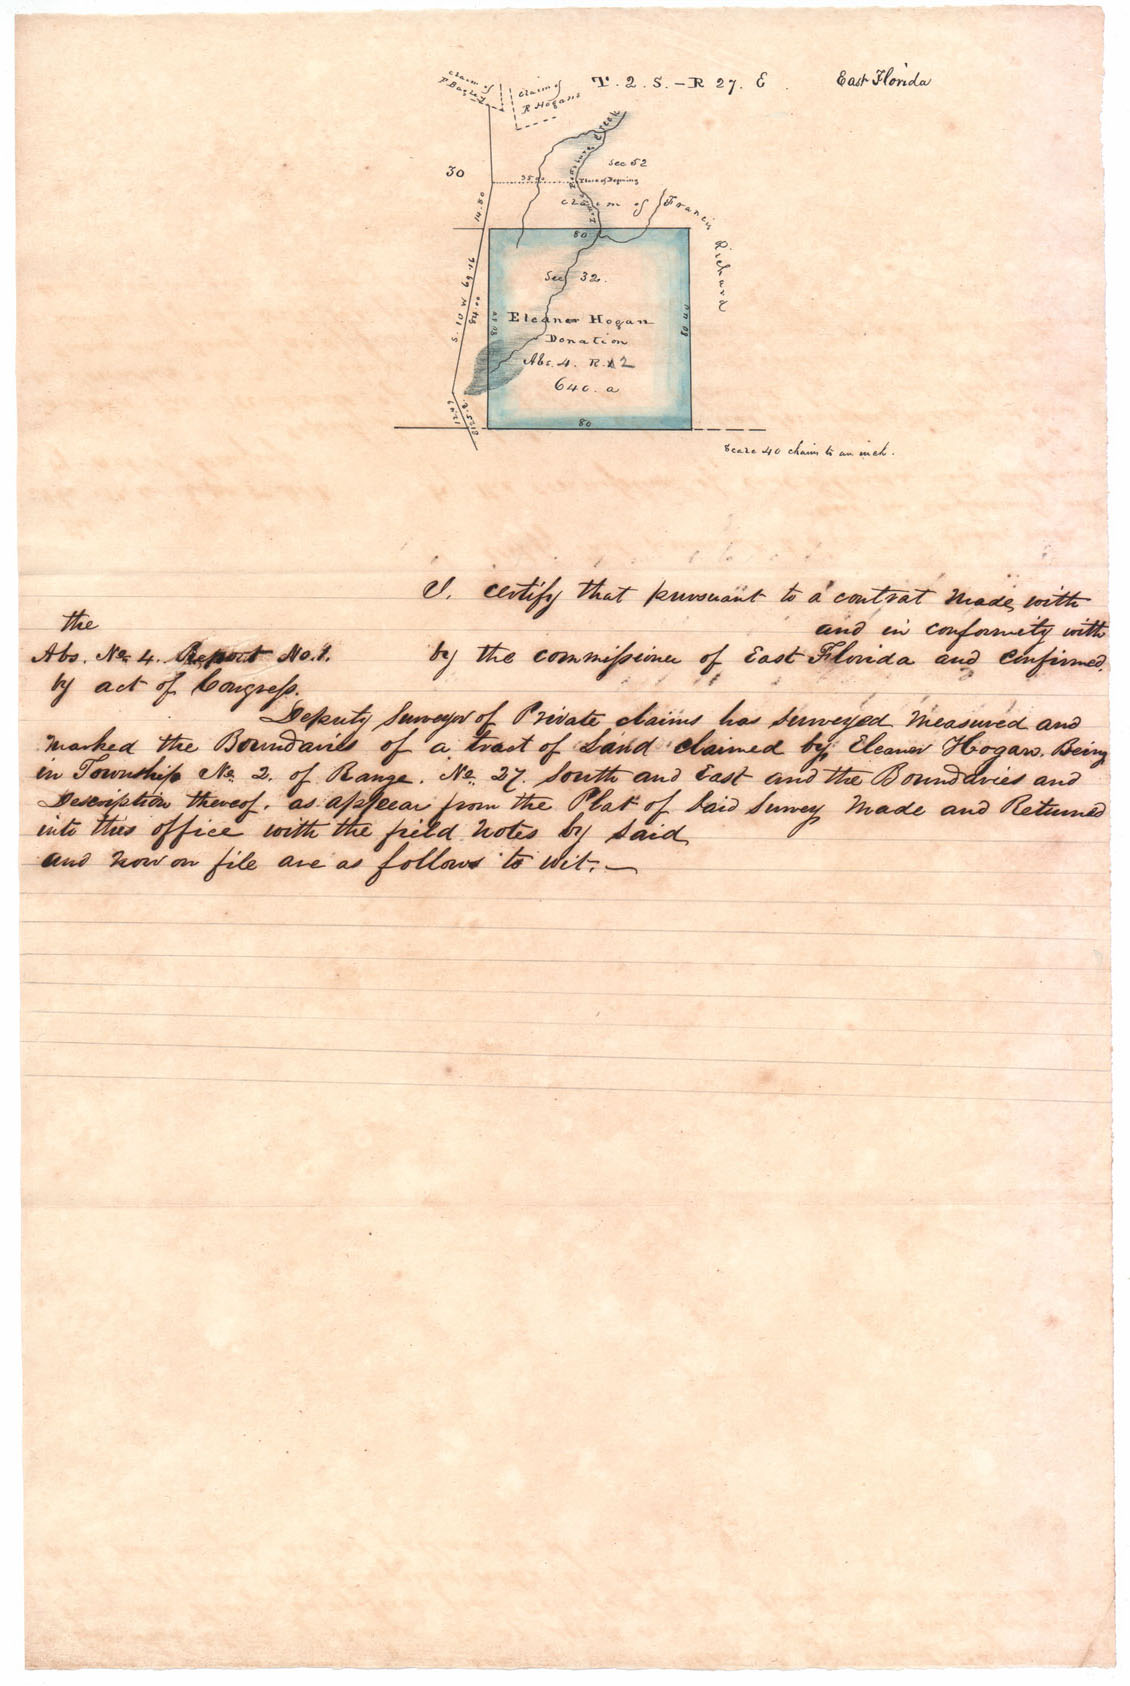 T. 2. S. – R 27. E.
East Florida
claim of
claim of
R Hogans
30
Sec 52
35
Place of Beginning
claim of Francis Richard
14.50
80
Sec 32.
S. 10 W 69.16
Eleaner Hogan
Donation
Abs. 4. R. 2
640. a
80
Scale 40 chains to an inch.
I. certify that pursuant to a contrat made with
the and in conformity with
Abs. No. 4. Report No. 1. by the commissioner of East Florida and confirmed.
by act of Congress.
Deputy Surveyor of Private claims has surveyed measured and
marked the Boundaries of a tract of Land claimed by Eleaner Hogans. Being
in Township No. 2. of Range. No. 27. South and East and the Boundaries and
Description thereof. as appear from the Plat of Said Survey made and Returned
into this office with the field notes by Said
and now on file are as follows to wit. —